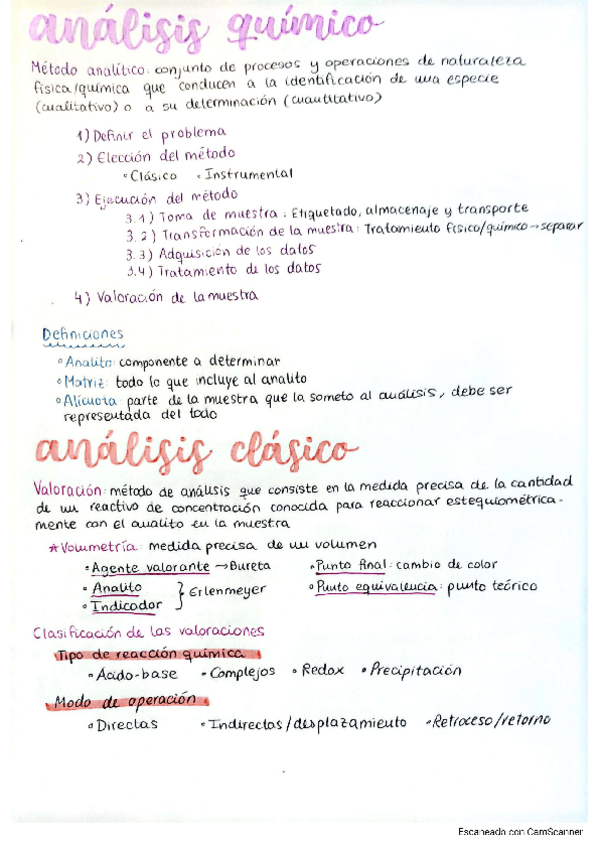 análisis químico
Método analítico: conjunto de procesos y operaciones de naturaleza
física/química que conducen a la identificación de una especie
(cualitativo) o a su determinación (cuantitativo)
1) Definir el problema
2) Elección del método
• Clásico • Instrumental
3) Ejecución del método
3.1) Toma de muestra: Etiquetado, almacenaje y transporte
3.2) Transformación de la muestra: Tratamiento físico/químico → separar
3.3) Adquisición de los datos
3.4) Tratamiento de los datos
4) Valoración de la muestra
Definiciones
• Analito: componente a determinar
• Matriz: todo lo que incluye al analito
• Alícuota: parte de la muestra que la someto al análisis, debe ser
representada del todo
análisis clásico
Valoración: método de análisis que consiste en la medida precisa de la cantidad
de un reactivo de concentración conocida para reaccionar estequiométrica-
mente con el analito en la muestra
* Volumetría: medida precisa de un volumen
• Agente valorante → Bureta • Punto final: cambio de color
• Analito } Erlenmeyer • Punto equivalencia: punto teórico
• Indicador
Clasificación de las valoraciones
Tipo de reacción química:
• Ácido-base • Complejos • Redox • Precipitación
Modo de operación:
• Directas • Indirectas/desplazamiento • Retroceso/retorno
Escaneado con CamScanner